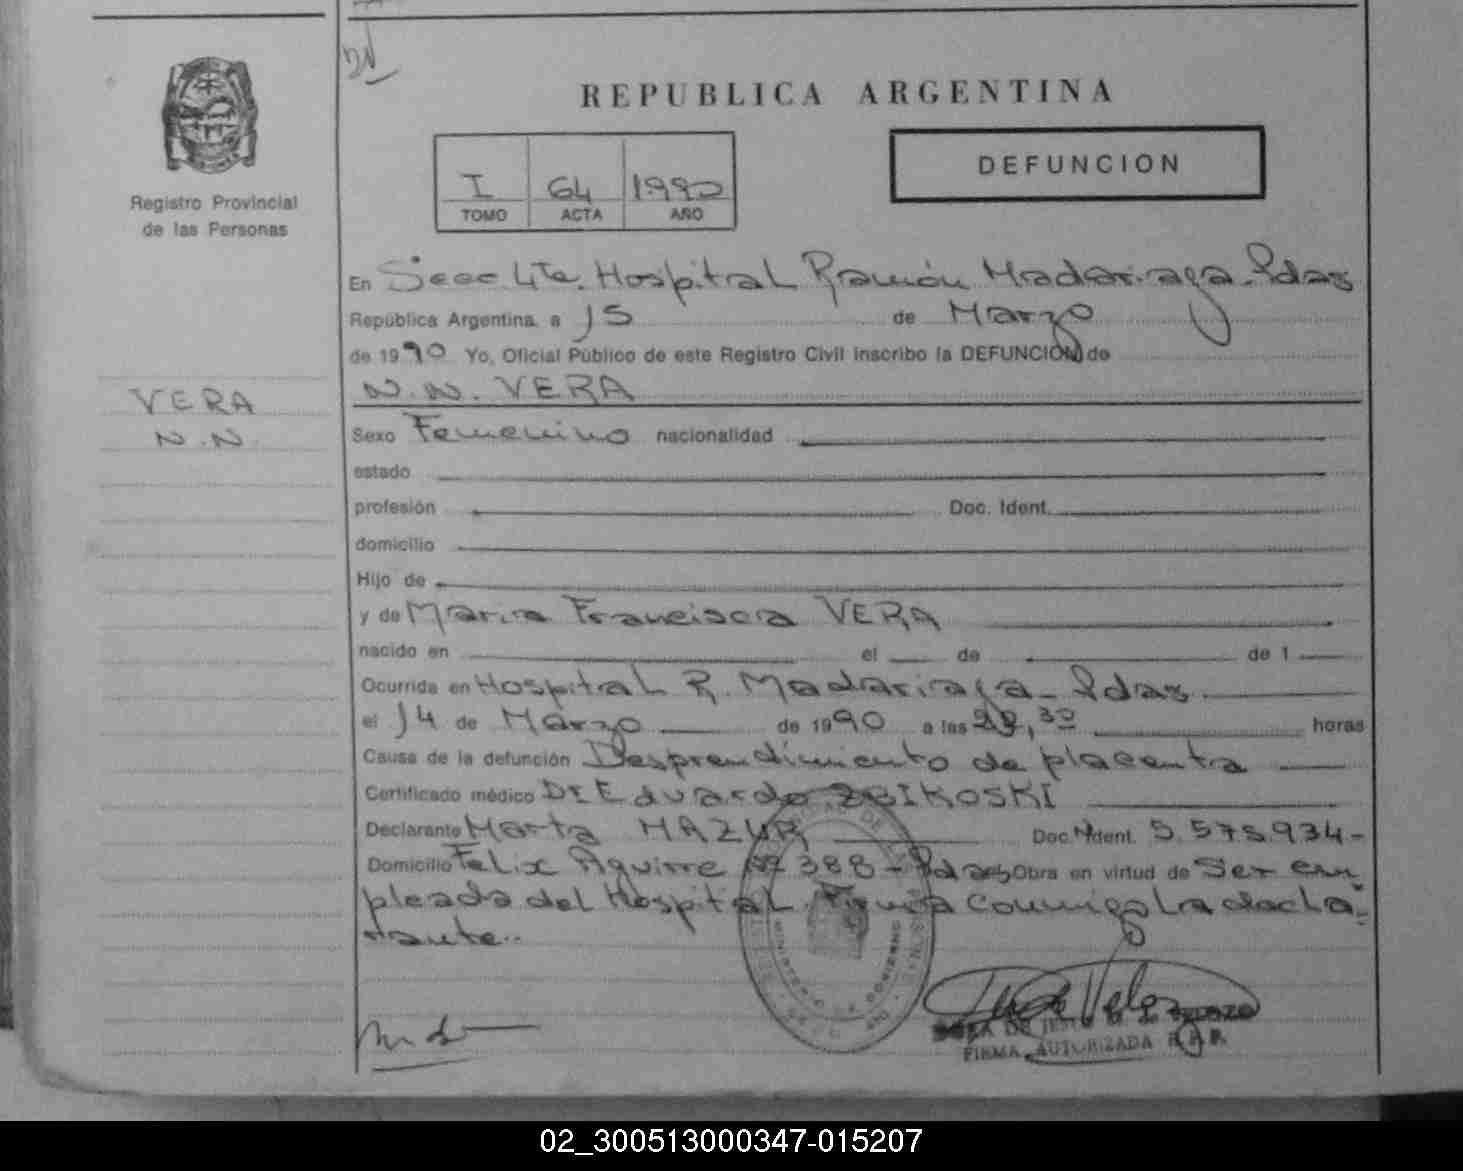 REPUBLICA ARGENTINA
DEFUNCION
I 64 1990
TOMO ACTA AÑO
Registro Provincial
de las Personas
En Secc 4ta. Hospital Ramón Madariaga-Pdas
República Argentina a 15 de Marzo
de 1990 Yo, Oficial Público de este Registro Civil inscribo la DEFUNCION de
N.N. VERA
VERA
N.N.
Sexo Femenino nacionalidad
estado
profesión Doc. Ident.
domicilio
Hijo de
y de Maria Francisca VERA
nacido en el de de 1
Ocurrida en Hospital R. Madariaga- Pdas.
el 14 de Marzo de 1990 a las ,30 horas
Causa de la defunción Desprendimiento de placenta
Certificado médico Eduardo ZBIKOSKI
Declarante Marta MAZUR Doc. Ident. 5.575.934-
Domicilio Felix Aguirre Nº 388 - Pdas Obra en virtud de Ser em
pleada del Hospital. Firma conmigo la decla-
rante..
MINISTERIO DE GOBIERNO
FIRMA AUTORIZADA R.P.P.
02_300513000347-015207